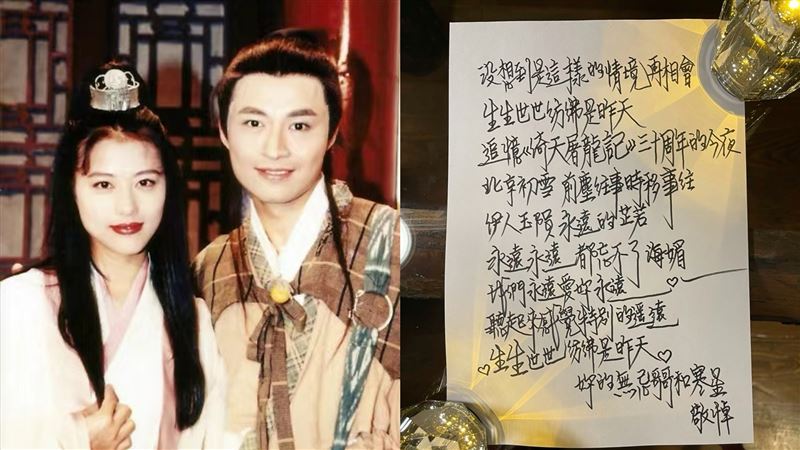 没想到是這樣的情境再相會
生生世世彷彿是昨天
追憶《倚天屠龍記》三十周年的今夜
北京初雪 前塵往事時移事往
伊人玉隕 永遠的芷若
永遠永遠 都忘不了 海媚
我們永遠愛妳永遠
聽起來感覺特別的遙遠
生生世世 彷彿是昨天
妳的無忌哥哥和寒星
敬悼